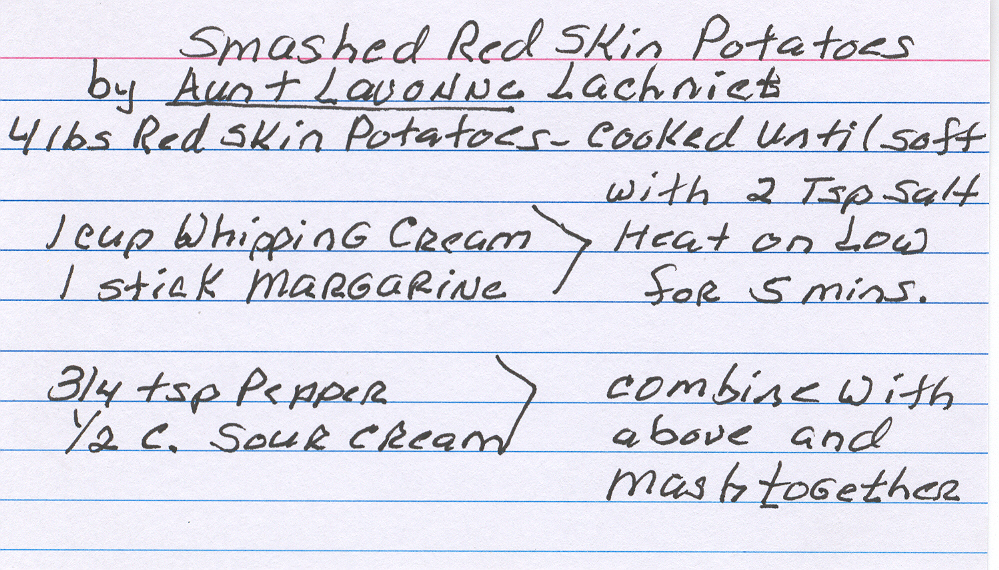 Smashed Red Skin Potatoes
by Aunt Lavonne Lachniet
4 lbs Red Skin Potatoes - cooked until soft
with 2 Tsp Salt
1 cup Whipping Cream > Heat on Low
1 stick MARGARINE for 5 mins.
3/4 tsp Pepper > combine with
1/2 c. Sour Cream above and
mash together